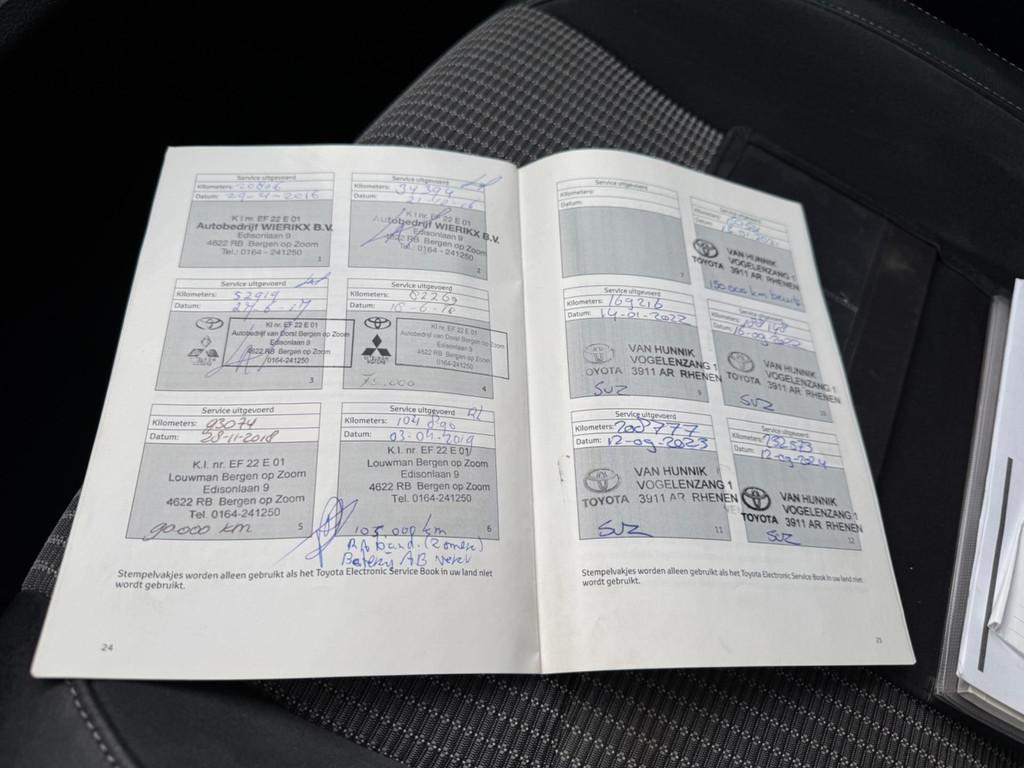 Service uitgevoerd
Kilometers: 20606
Datum: 29-4-2016
K.I nr. EF 22 E 01
Autobedrijf WIERIKX B.V.
Edisonlaan 9
4622 RB Bergen op Zoom
Tel.: 0164-241250
1
Service uitgevoerd
Kilometers: 34394
Datum:
K.I nr. EF 22 E 01
Autobedrijf WIERIKX B.V.
Edisonlaan 9
4622 RB Bergen op Zoom
Tel.: 0164-241250
2
Service uitgevoerd
Kilometers: 52919
Datum: 27-6-17
KI nr. EF 22 E 01
Autobedrijf van Dorst Bergen op Zoom
Edisonlaan 9
4622 RB Bergen op Zoom
0164-241250
3
Service uitgevoerd
Kilometers:
Datum: 18-6-18
KI nr. EF 22 E 01
Autobedrijf van Dorst Bergen op Zoom
Edisonlaan 9
4622 RB Bergen op Zoom
0164-241250
75.000
4
Service uitgevoerd
Kilometers: 93074
Datum: 28-11-2018
K.I. nr. EF 22 E 01
Louwman Bergen op Zoom
Edisonlaan 9
4622 RB Bergen op Zoom
Tel. 0164-241250
90.000 km
5
Service uitgevoerd
Kilometers: 104890
Datum: 03-04-2019
K.I. nr. EF 22 E 01
Louwman Bergen op Zoom
Edisonlaan 9
4622 RB Bergen op Zoom
Tel. 0164-241250
105.000 km
6
Stempelvakjes worden alleen gebruikt als het Toyota Electronic Service Book in uw land niet
wordt gebruikt.
24
Service uitgevoerd
Kilometers:
Datum:
7
Service uitgevoerd
Kilometers:
Datum:
VAN HUNNIK
VOGELENZANG 1
TOYOTA 3911 AR RHENEN
150.000 km beurt
Service uitgevoerd
Kilometers: 169216
Datum: 14-01-2022
VAN HUNNIK
VOGELENZANG 1
OYOTA 3911 AR RHENEN
SVZ
9
Service uitgevoerd
Kilometers:
Datum:
VAN HUNNIK
VOGELENZANG 1
TOYOTA 3911 AR RHENEN
SVZ
10
Service uitgevoerd
Kilometers: 208777
Datum: 12-09-2023
VAN HUNNIK
VOGELENZANG 1
TOYOTA 3911 AR RHENEN
SVZ
11
Service uitgevoerd
Kilometers: 232573
Datum: 12-09-2024
VAN HUNNIK
VOGELENZANG 1
TOYOTA 3911 AR RHENEN
SVZ
12
Stempelvakjes worden alleen gebruikt als het Toyota Electronic Service Book in uw land niet
wordt gebruikt.
25